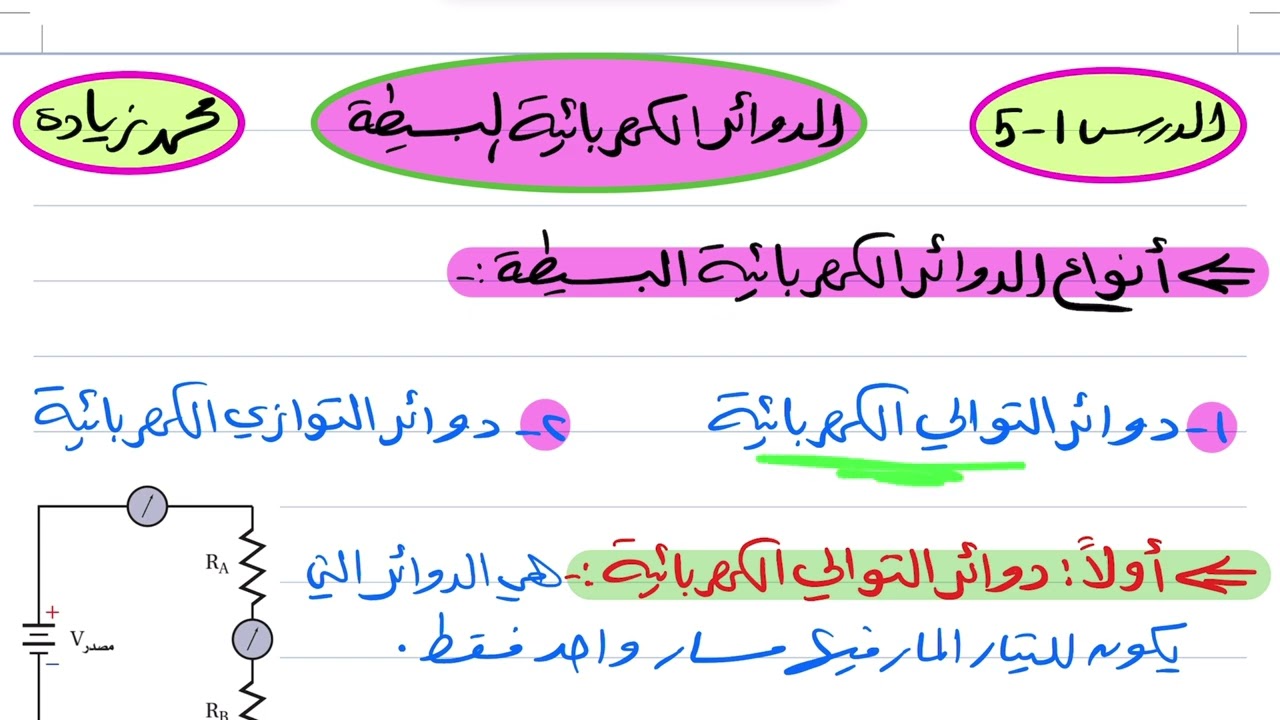 الدرس 1-5
الدوائر الكهربائية البسيطة
محمد زيادة
⇐ أنواع الدوائر الكهربائية البسيطة :-
1- دوائر التوالي الكهربائية
2- دوائر التوازي الكهربائية
⇐ أولاً : دوائر التوالي الكهربائية :- هي الدوائر التي
يكون للتيار المار فيها مسار واحد فقط .
RA
+
Vمصدر
−
RB